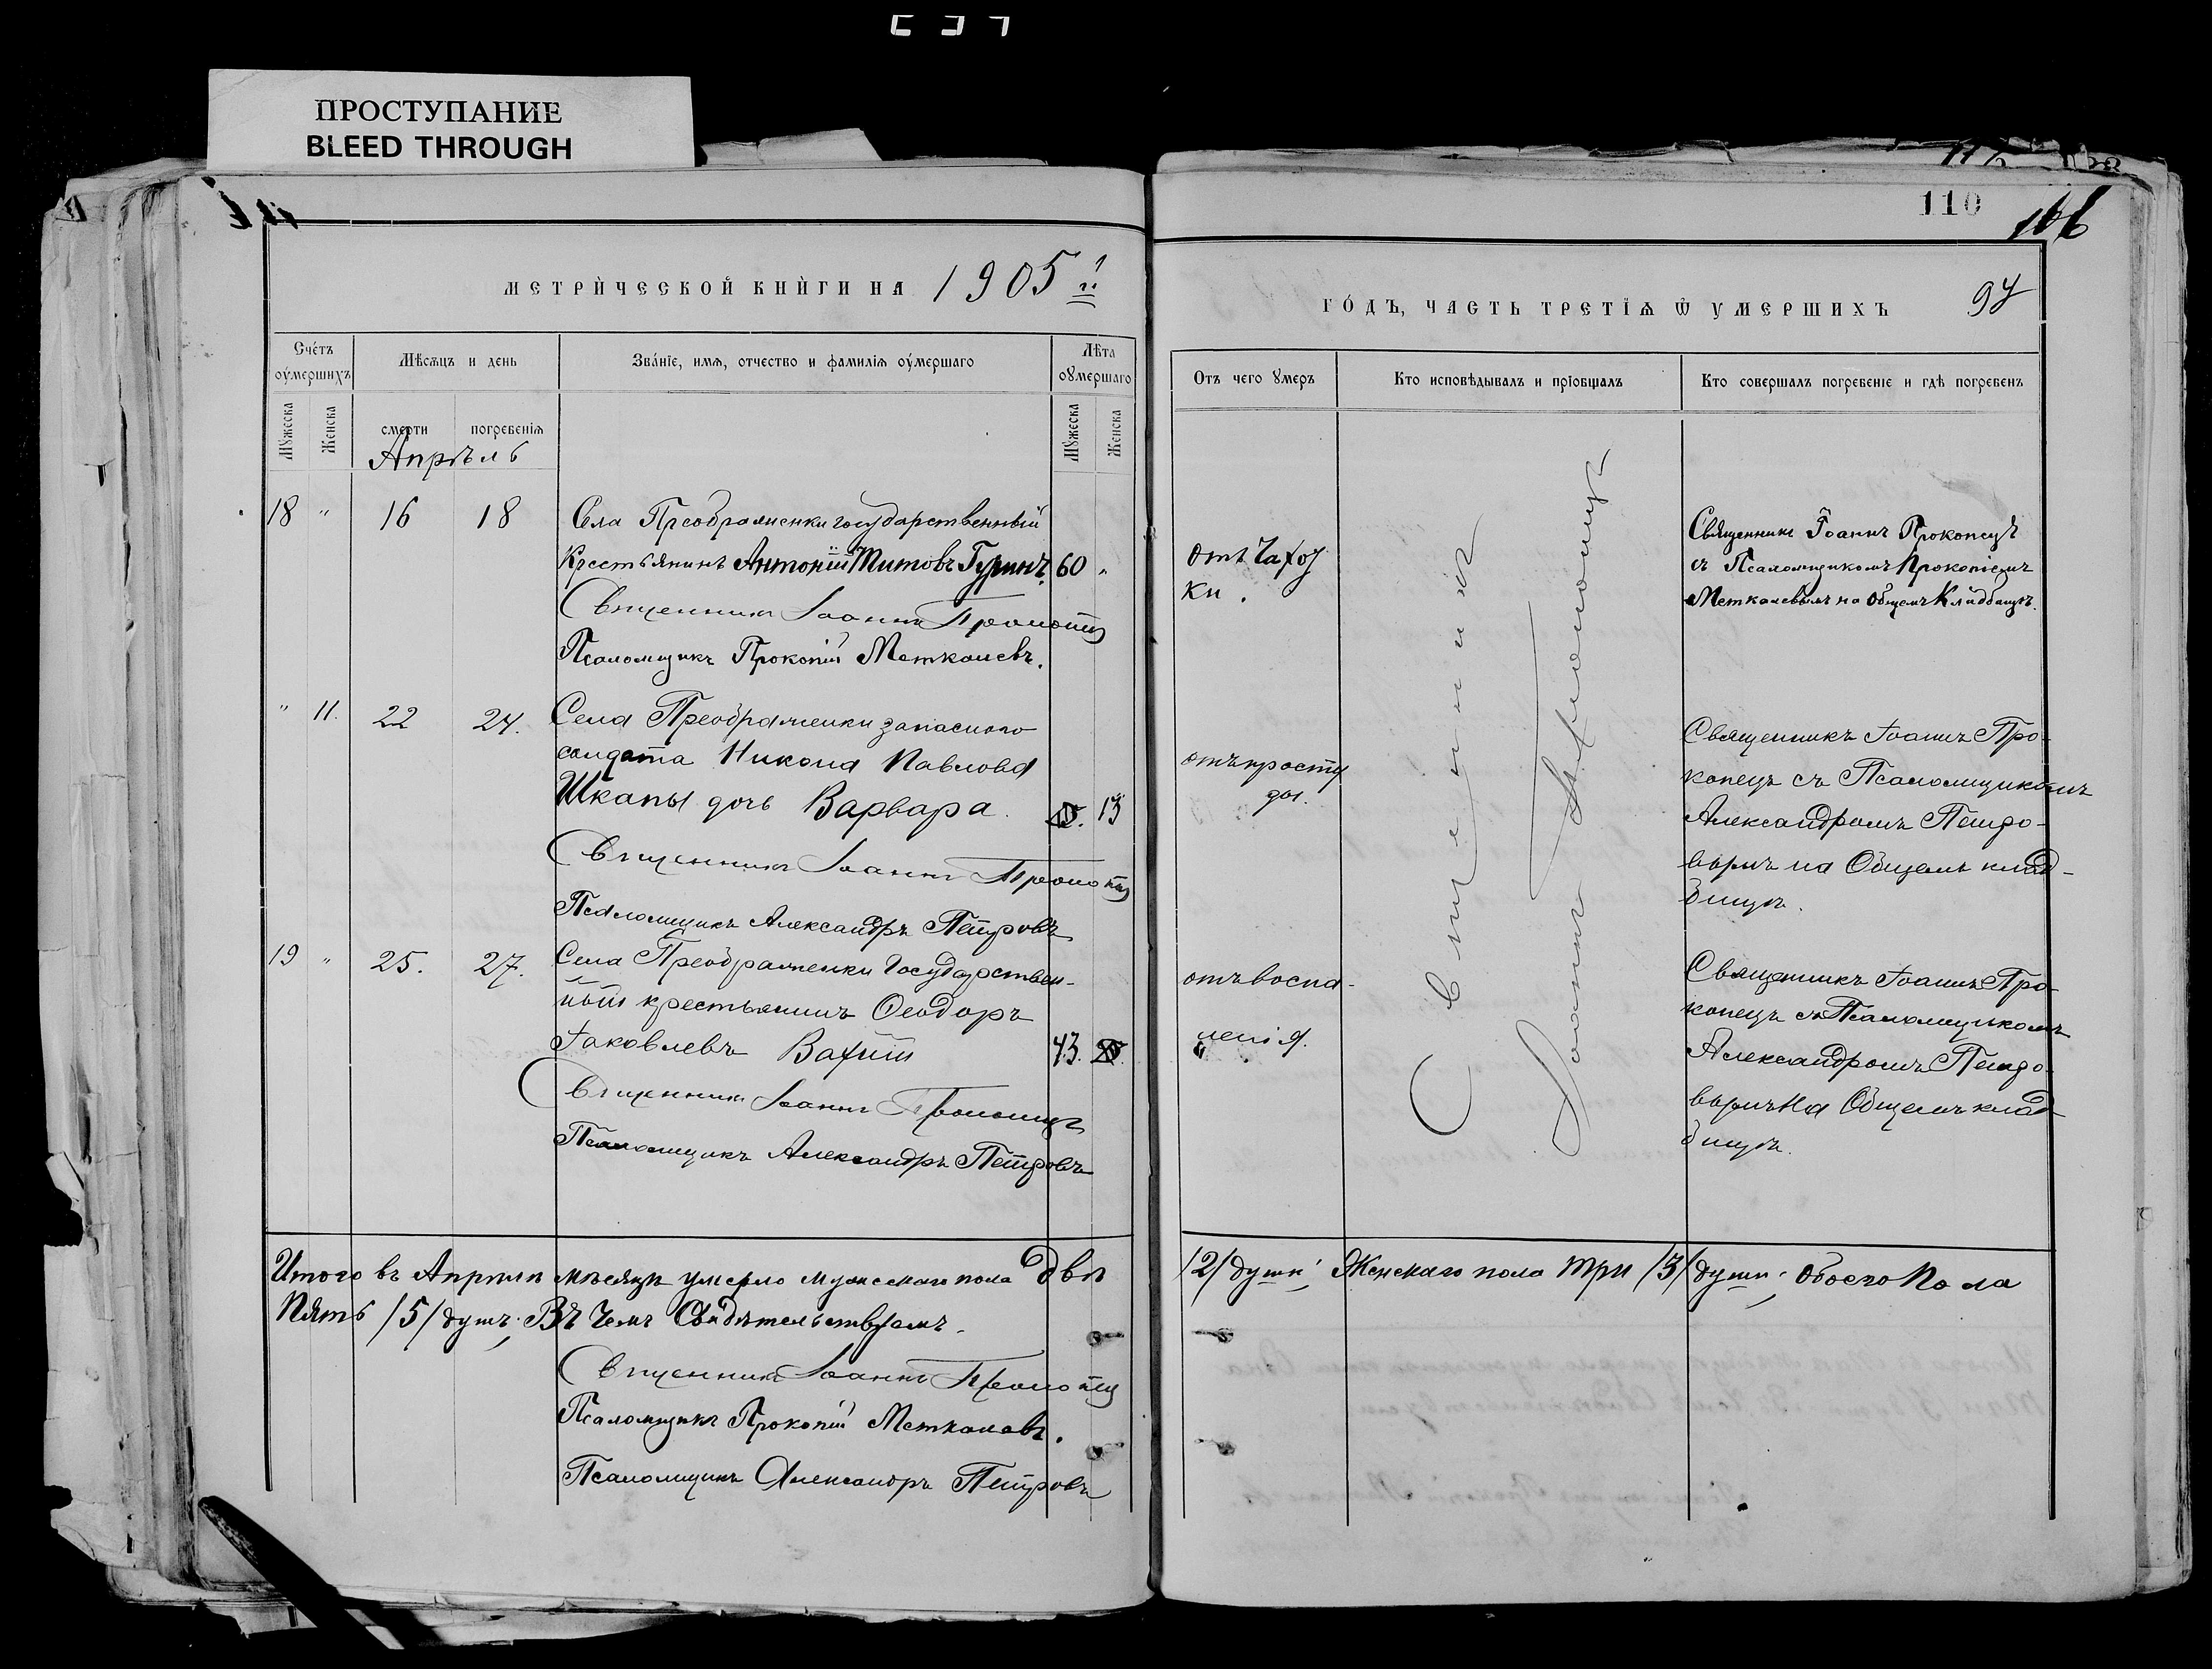 ПРОСТУПАНИЕ
BLEED THROUGH
110
116
МЕТРИЧЕСКОЙ КНИГИ НА 1905 й
ГОДЪ, ЧАСТЬ ТРЕТІѦ Ѿ УМЕРШИХЪ 97
Счетъ оумершихъ
Мѣсѧцъ и день
Званіе, имѧ, отчество и фамиліѧ оумершаго
Лѣта оумершаго
Отъ чего умеръ
Кто исповѣдывалъ и пріобщалъ
Кто совершалъ погребеніе и гдѣ погребенъ
Мужеска
Женска
смерти
погребеніѧ
Мужеска
Женска
Апрѣль
18 " 16 18
Села Преображенки государственный
Крестьянинъ Антоній Титовъ Гуринъ. 60 "
Священникъ Іоаннъ Прокопецъ
Псаломщикъ Прокопій Меткалевъ.
Отъ Чахот
ки.
Священникъ Іоаннъ Прокопецъ
съ Псаломщикомъ Прокопіемъ
Меткалевымъ на Общемъ Кладбищѣ.
" 11. 22 24.
Села Преображенки запаснаго
солдата Никона Павлова
Шкапы дочь Варвара. 13
Священникъ Іоаннъ Прокопецъ
Псаломщикъ Александръ Петровъ
отъ просту
ды.
Священникъ Іоаннъ Про-
копецъ съ Псаломщикомъ
Александромъ Петро-
вымъ на Общемъ клад-
бищѣ.
19 " 25. 27.
Села Преображенки Государствен-
ный крестьянинъ Ѳеодоръ
Іаковлевъ Вахній 43.
Священникъ Іоаннъ Прокопецъ
Псаломщикъ Александръ Петровъ
отъ воспа-
ленія.
Священникъ Іоаннъ Про-
копецъ съ Псаломщикомъ
Александромъ Петро-
вымъ на Общемъ клад-
бищѣ.
Священникъ
Іоаннъ Прокопецъ
Итого въ Апрѣлѣ мѣсяцѣ умерло мужескаго пола двѣ /2/ души; Женскаго пола три /3/ души; обоего пола
Пять /5/ душъ; Въ Чемъ Свидѣтельствуемъ.
Священникъ Іоаннъ Прокопецъ
Псаломщикъ Прокопій Меткалевъ.
Псаломщикъ Александръ Петровъ